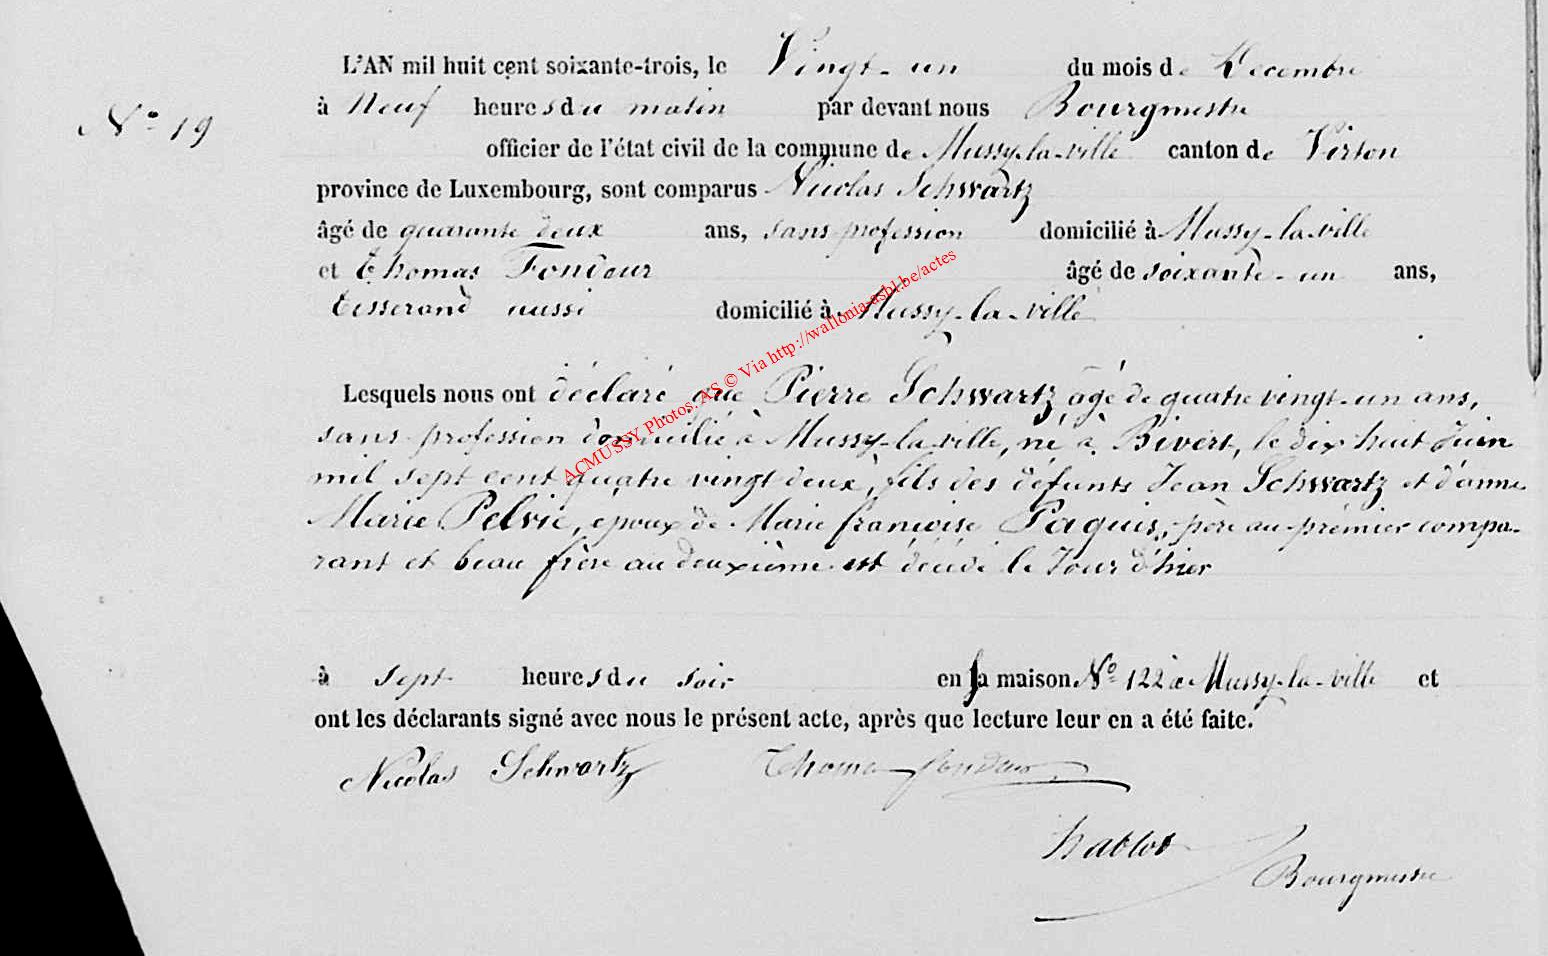 L'AN mil huit cent soixante-trois, le Vingt-un du mois de Decembre
N° 19
à Neuf heures du matin par devant nous Bourgmestre
officier de l'état civil de la commune de Mussy-la-ville canton de Virton
province de Luxembourg, sont comparus Nicolas Schwartz
âgé de quarante deux ans, sans profession domicilié à Mussy-la-ville
et Thomas Fondeur âgé de soixante-un ans,
tisserand aussi domicilié à Mussy-la-ville
Lesquels nous ont déclaré que Pierre Schwartz, âgé de quatre vingt-un ans,
sans profession domicilié à Mussy-la-ville, né à Bivert, le dix huit Juin
mil sept cent quatre vingt deux, fils des défunts Jean Schwartz et d'anne
Marie Pelvie, époux de Marie françoise Paquis, père au prémier compa-
rant et beau frère au deuxième est décédé le Jour d'hier
à sept heures du soir en sa maison N° 122 à Mussy-la-ville et
ont les déclarants signé avec nous le présent acte, après que lecture leur en a été faite.
Nicolas Schwartz Thomas fondeur
hablot
Bourgmestre
ACMUSSY Photos. AS © Via http://wallonia-asbl.be/actes